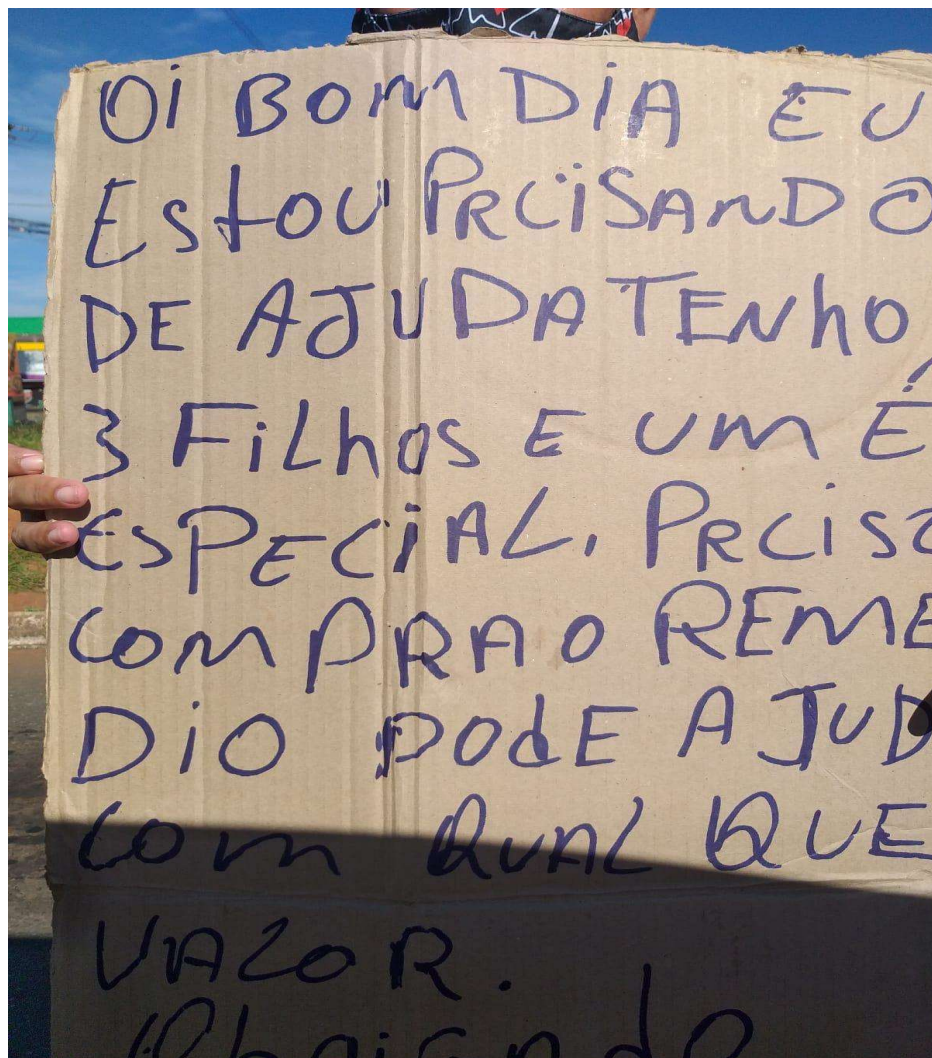 Oi BOM DiA EU
EstoU PRCiSANDO
DE AJUDA TENhO
3 FiLhOS E UM É
ESPECiAL. PRCISO
COMPRA O REME
DiO PODE AJUD
COM QUAL QUE
VALOR.